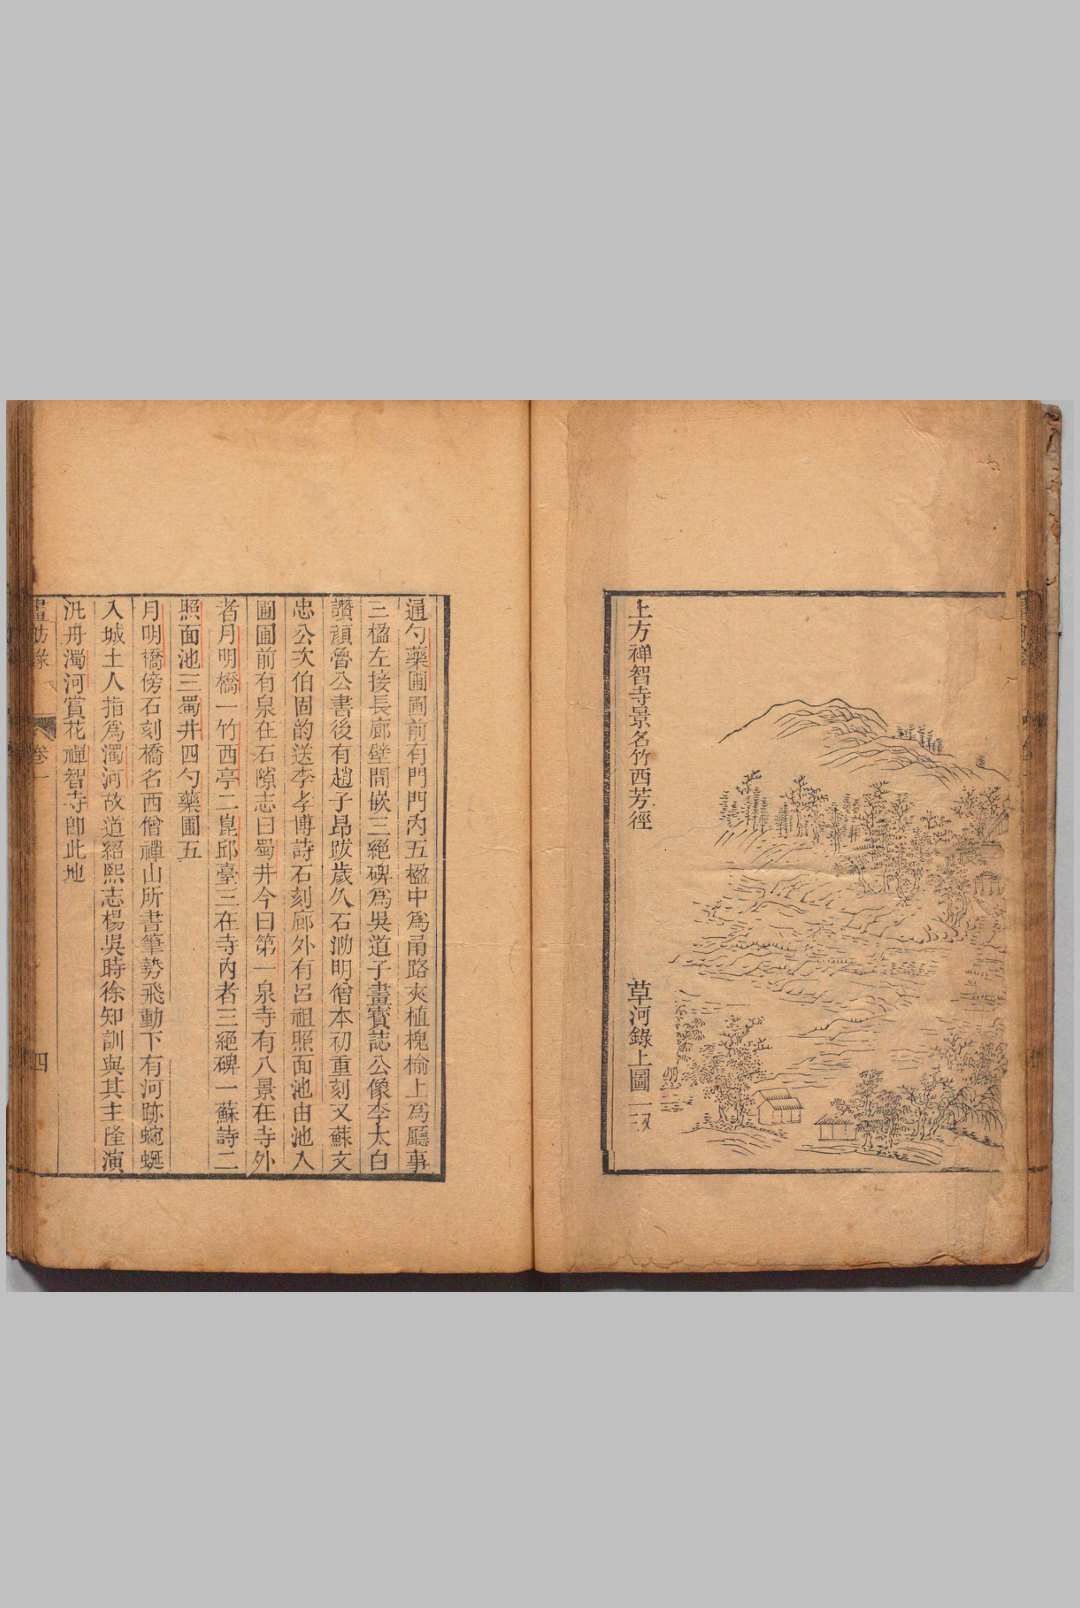 上方禪智寺景名竹西芳徑
草河錄上圖一
通勺藥圃圃前有門門內五楹中爲甬路夾植槐榆上爲廳事
三楹左接長廊壁間嵌三絕碑爲吳道子畫寶誌公像李太白
讚顏魯公書後有趙子昂跋歲久石泐明僧本初重刻又蘇文
忠公次伯固韵送李孝博詩石刻廊外有呂祖照面池由池入
圃圃前有泉在石隙志曰蜀井今曰第一泉寺有八景在寺外
者月明橋一竹西亭二崑邱臺三在寺內者三絕碑一蘇詩二
照面池三蜀井四勺藥圃五
月明橋傍石刻橋名西僧禪山所書筆勢飛動下有河跡蜿蜒
入城土人指爲濁河故道紹熙志楊吳時徐知訓與其主隆演
汎舟濁河賞花禪智寺卽此地
畫舫錄
卷一
四